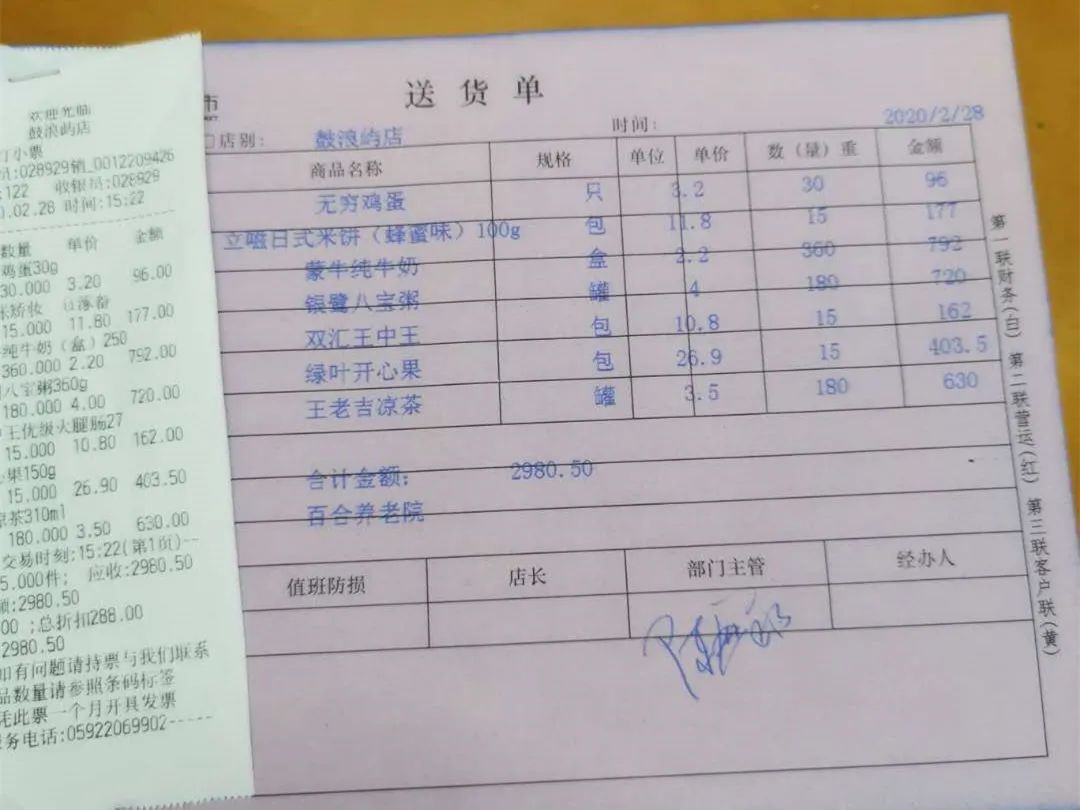 欢迎光临
鼓浪屿店
小票
:028929销_0012209426
:122 收银员:028929
.02.28 时间:15:22
数量 单价 金额
鸡蛋30g
30.000 3.20 96.00
15.000 11.80 177.00
纯牛奶(盒)250
360.000 2.20 792.00
八宝粥360g
180.000 4.00 720.00
中王优级火腿肠27
15.000 10.80 162.00
果150g
15.000 26.90 403.50
凉茶310ml
180.000 3.50 630.00
交易时刻:15:22(第1页)--
5.000件; 应收:2980.50
:2980.50
00 ;总折扣288.00
2980.50
如有问题请持票与我们联系
品数量请参照条码标签
凭此票一个月开具发票
务电话:05922069902-----
市
送货单
店别: 鼓浪屿店 时间: 2020/2/28
商品名称 规格 单位 单价 数(量)重 金额
无穷鸡蛋 只 3.2 30 96
立嗞日式米饼(蜂蜜味)100g 包 11.8 15 177
蒙牛纯牛奶 盒 2.2 360 792
银鹭八宝粥 罐 4 180 720
双汇王中王 包 10.8 15 162
绿叶开心果 包 26.9 15 403.5
王老吉凉茶 罐 3.5 180 630
合计金额: 2980.50
百合养老院
值班防损 店长 部门主管 经办人
第一联财务(白) 第二联营运(红) 第三联客户联(黄)